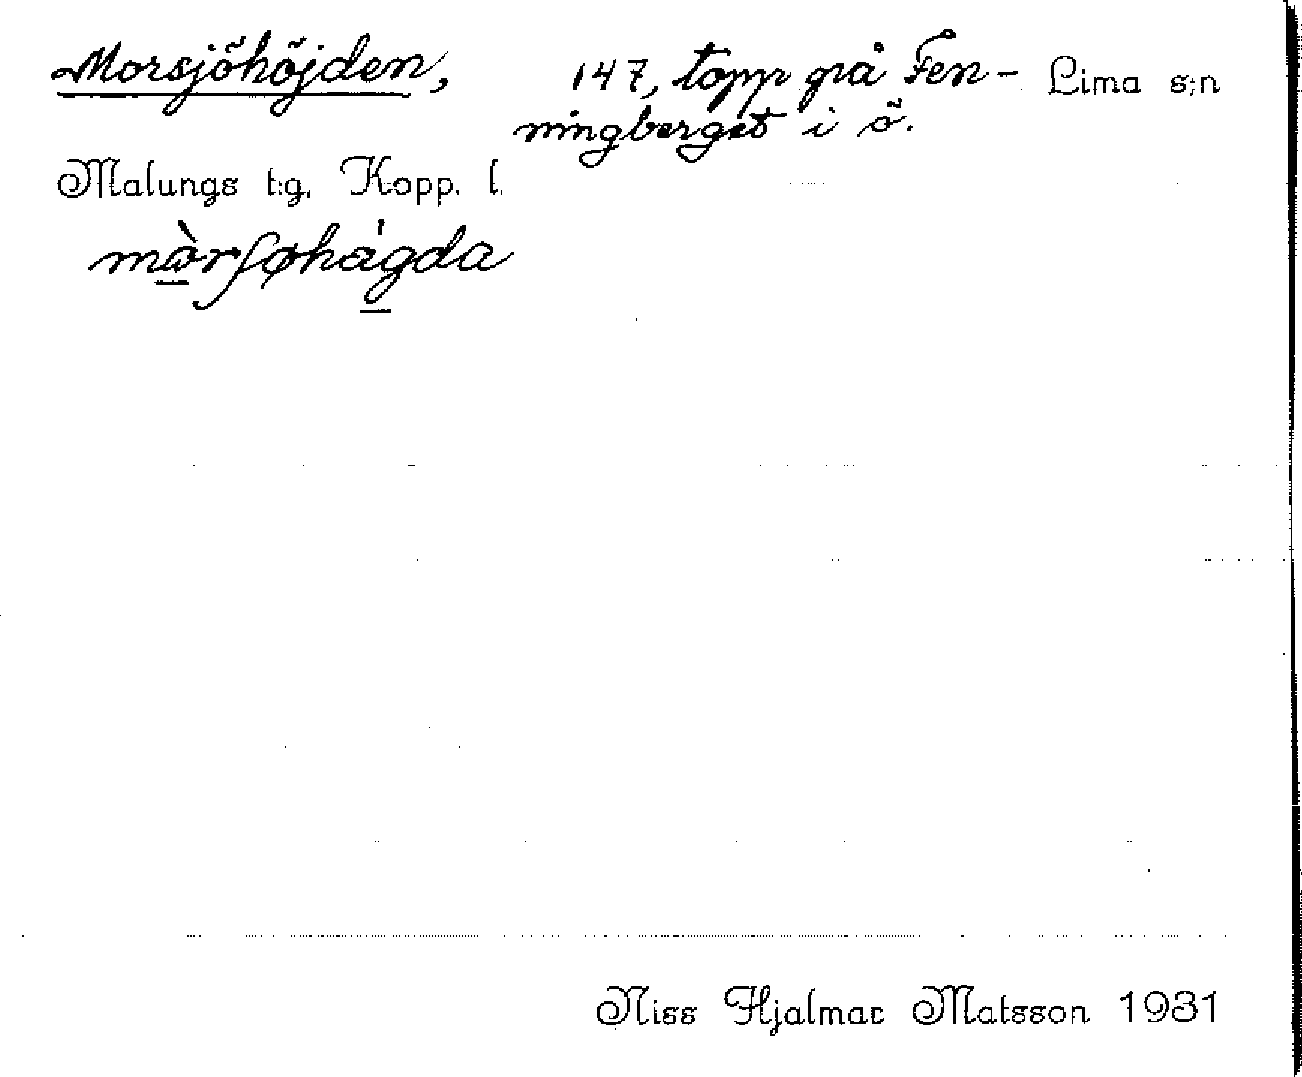 Morsjöhöjden, 147, topp på Fen- Lima s:n
ningberget i ö.
Malungs t:g. Kopp. l.
Niss Hjalmar Matsson 1931